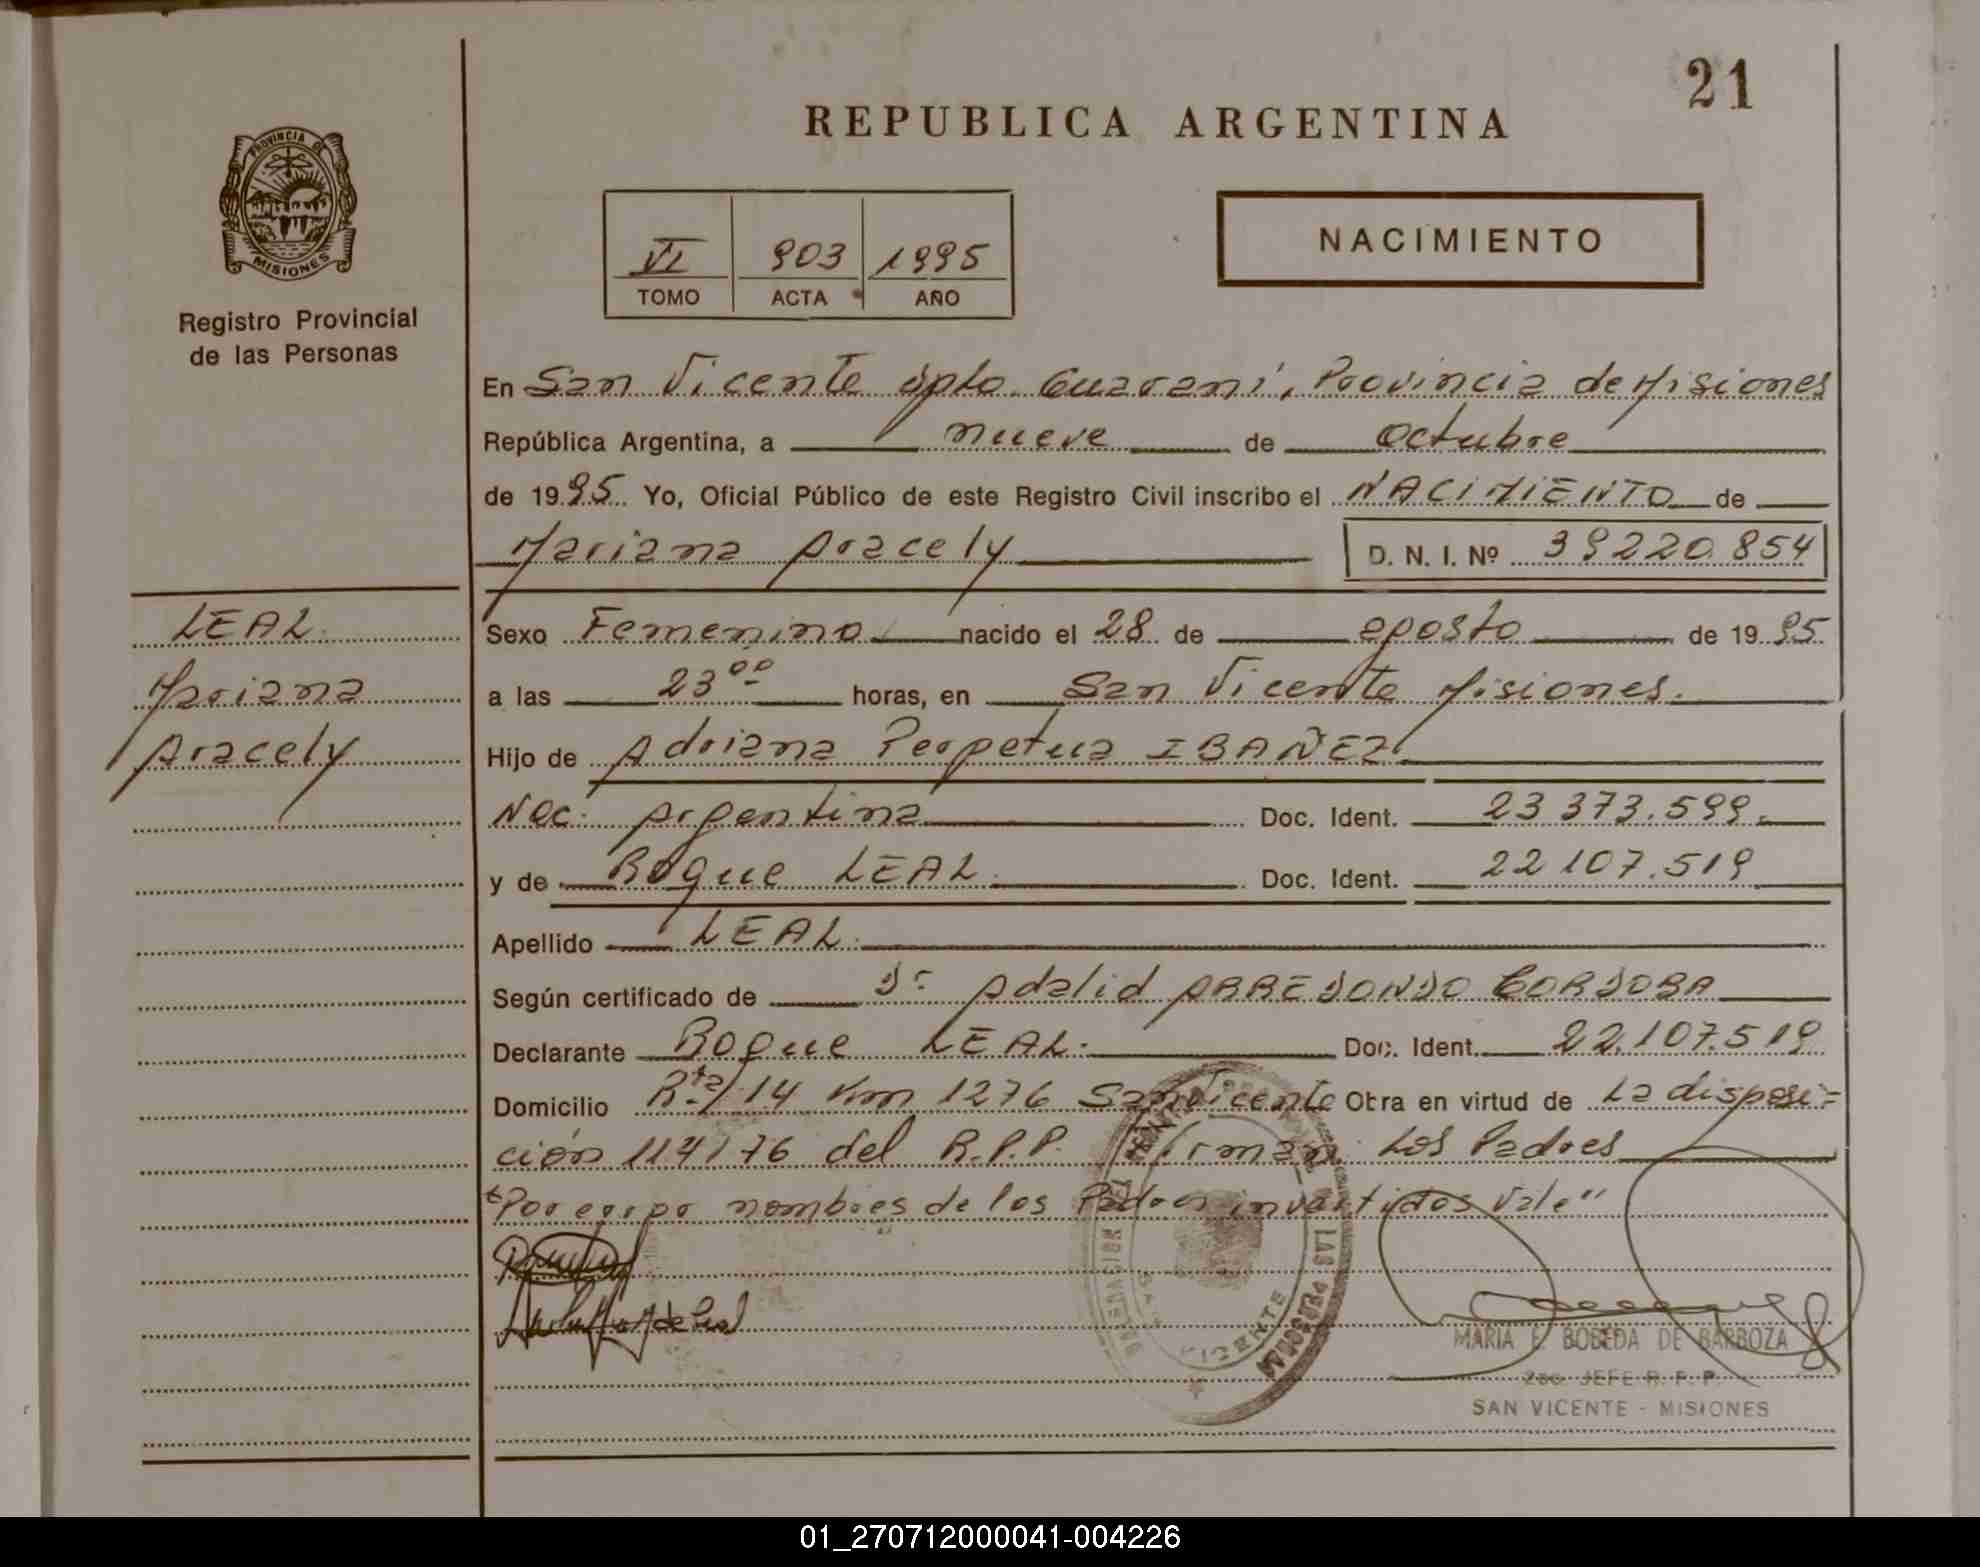 21
REPUBLICA ARGENTINA
PROVINCIA DE
MISIONES
Registro Provincial
de las Personas
VI 903 1995
TOMO ACTA AÑO
NACIMIENTO
En San Vicente Dpto. Guaraní, Provincia de Misiones
República Argentina, a nueve de octubre
de 1995 Yo, Oficial Público de este Registro Civil inscribo el NACIMIENTO de
Mariana Aracely D. N. I. Nº 39220.854
LEAL
Mariana
Aracely
Sexo Femenino nacido el 28 de agosto de 1995
a las 23 00 horas, en San Vicente Misiones.
Hijo de Adriana Perpetua IBAÑEZ
Nac. Argentina Doc. Ident. 23 373.599.
y de Roque LEAL. Doc. Ident. 22 107.519
Apellido LEAL.
Según certificado de Dr Adalid ARREDONDO CORDOBA
Declarante Roque LEAL. Doc. Ident. 22.107.519
Domicilio Rta/14 Km 1276 San Vicente Obra en virtud de La disposi=
ción 114/76 del R.P.P. Firman: Los Padres
"Por equipo nombres de los Padres invertidos Vale"
LAS PERSONAS
VICENTE
MARIA E. BOBEDA DE BARBOZA
2do JEFE R. P. P.
SAN VICENTE - MISIONES
01_270712000041-004226